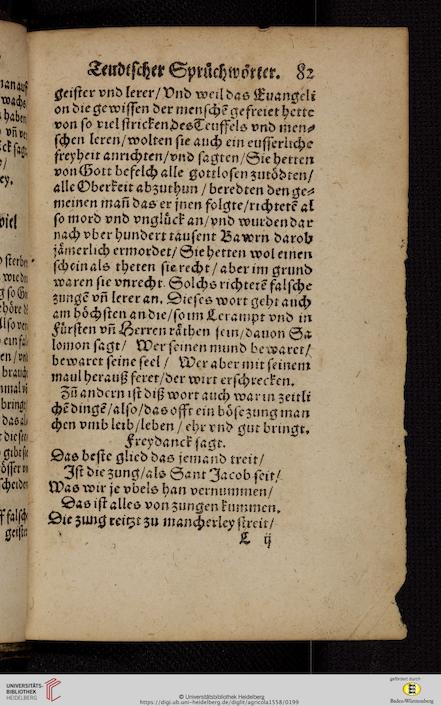 Teudtscher Sprüchwörter. 82
geister vnd lerer/ Vnd weil das Euangeli
on die gewissen der menschẽ gefreiet hette
von so viel stricken des Teuffels vnd men⸗
schen leren/ wolten sie auch ein eusserliche
freyheit anrichten/ vnd sagten/ Sie hetten
von Gott befelch alle gottlosen zutödten/
alle Oberkeit abzuthun/ beredten den ge⸗
meinen mañ das er jnen folgte/ richtetẽ al
so mord vnd vnglück an/ vnd wurden dar
nach vber hundert tausent Bawrn darob
jämerlich ermordet/ Sie hetten wol einen
schein als theten sie recht/ aber im grund
waren sie vnrecht. Solchs richtetẽ falsche
zungẽ vñ lerer an. Dieses wort geht auch
am höchsten an die/ so im Lerampt vnd in
Fürsten vñ Herren räthen sein/ dauon Sa
lomon sagt/ Wer seinen mund bewaret/
bewaret seine seel/ Wer aber mit seinem
maul herauß feret/ der wirt erschrecken.
Zũ andern ist diß wort auch war in zeitli
chẽ dingẽ/ also/ das offt ein böse zung man
chen vmb leib/ leben/ ehr vnd gut bringt.
Freydanck sagt.
Das beste glied das jemand treit/
Jst die zung/ als Sant Jacob seit/
Was wir je vbels han vernummen/
Das ist alles von zungen kummen.
Die zung reitzt zu mancherley streit/
L ij
UNIVERSITÄTS-
BIBLIOTHEK
HEIDELBERG
© Universitätsbibliothek Heidelberg
https://digi.ub.uni-heidelberg.de/diglit/agricola1558/0199
gefördert durch
Baden-Württemberg